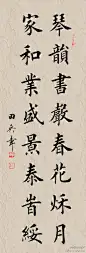 琴韻書聲春花秋月
家和業盛景泰旹綏
田英章